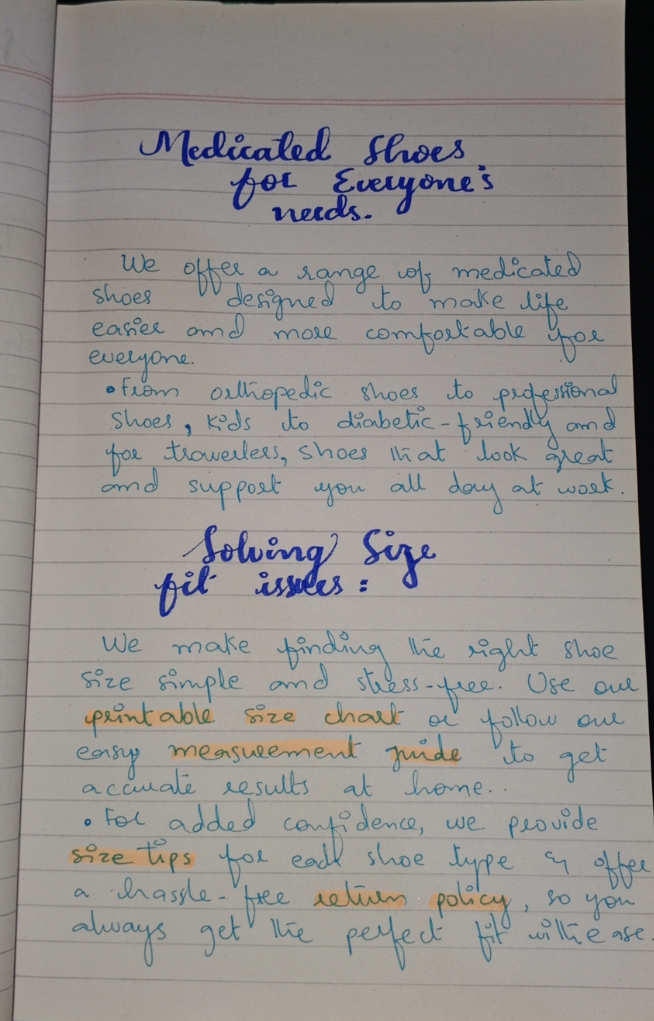 Medicated Shoes
for Everyone's
needs.
We offer a range of medicated
shoes designed to make life
easier and more comfortable for
everyone.
• From orthopedic shoes to professional
shoes, kids to diabetic-friendly and
for travellers, shoes that look great
and support you all day at work.
Solving Size
fit issues:
We make finding the right shoe
size simple and stress-free. Use our
printable size chart or follow our
easy measurement guide to get
accurate results at home..
• For added confidence, we provide
size tips for each shoe type & offer
a hassle-free return policy, so you
always get the perfect fit with ease.